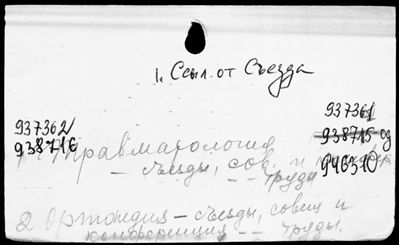 1. Ссыл. от Съезда
937362
938716
937361
938715 сд
946510
1. Травматология
– съезды, сов. и
– – Труды
2 Ортопедия – съезды, совещ и
конференции – – Труды.